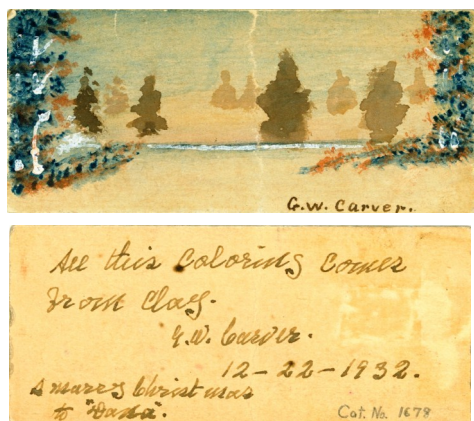 G.W. Carver.
All this Coloring Comes
From Clay.
G.W. Carver.
12-22-1932.
A marry Christmas
to "Dana".
Cat. No. 1678